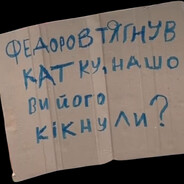 ФЕДОРОВ ТЯГНУВ
КАТКУ, НАШО
ВИ ЙОГО
КІКНУЛИ?